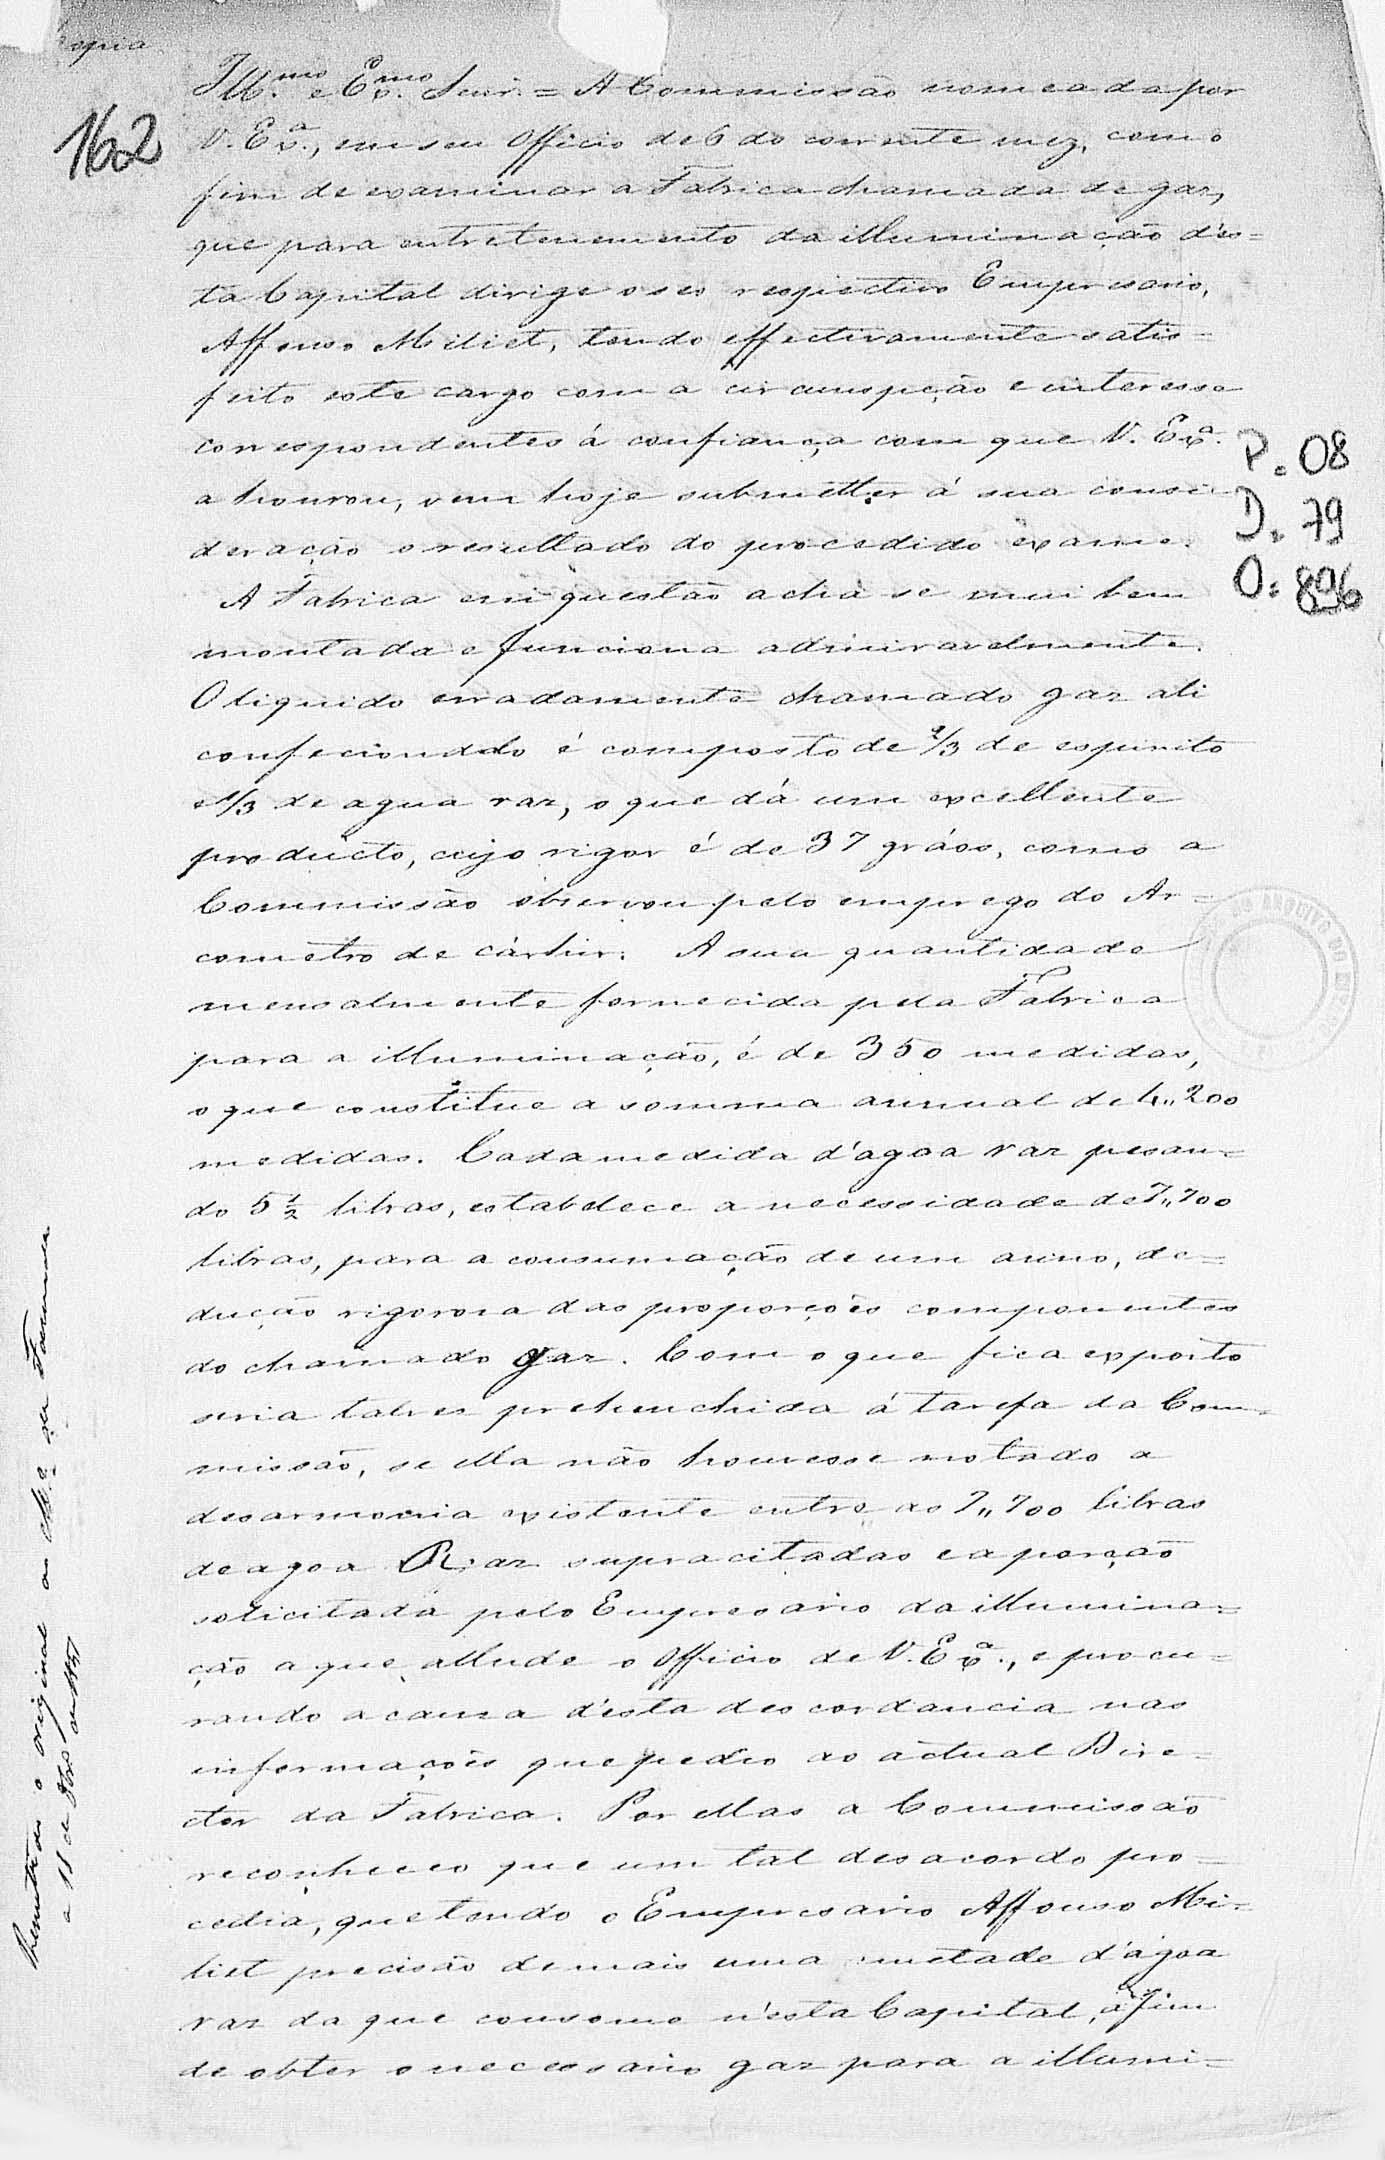 Copia
162
Ill.mo e Ex.mo Snr. = A Commissão nomeada por
V. Ex.a, em seu Officio de 6 do corrente mez, com o
fim de examinar a Fabrica chamada de gaz,
que para entretenemento da illuminação d'es=
ta Capital dirige o seo respectivo Empresario,
Affonso Miliet, tendo effectivamente satis=
feito este cargo com a circunspeção e interesse
correspondentes á confiança com que V. Ex.a
a honrou, vem hoje submetter á sua consi=
deração o resultado do procedido exame.
A Fabrica em questão acha se mui bem
montada e funciona admiravelmente.
O liquido erradamente chamado gaz ali
confecionado é composto de 2/3 de espirito
e 1/3 de agua raz, o que dá um excellente
producto, cujo vigor é de 37 gráos, como a
Commissão observou pelo emprego do Ar=
cometro de cártier. A sua quantidade
mensalmente fornecida pela Fabrica
para a illuminação, é de 350 medidas,
o que constitue a somma annual de 4,,200
medidas. Cada medida d'agoa raz pesan=
do 5 1/2 libras, estabelece a necessidade de 7,,700
libras, para a consumação de um anno, de=
dução rigorosa das proporções componentes
do chamado gaz. Com o que fica exposto
seria talvez prehenchida á tarefa da Com=
missão, se ella não houvesse notado a
desarmonia existente entre as 7,,700 libras
de agoa Raz supracitadas e a porção
solicitada pelo Empresario da illumina=
ção a que allude o Officio de V. Ex.a, e procu=
rando a causa d'esta descordancia nas
informações que pedio ao actual Dire=
ctor da Fabrica. Por ellas a Commissão
reconheceo que um tal desacordo pro=
cedia, que tendo o Empresario Affonso Mi=
liet precisão de mais uma metade d'agoa
raz da que consome n'esta Capital, a fim
de obter o necessario gaz para a illumi=
P. 08
D. 79
O: 896
Remetteu-se o original ao da Fazenda
a 18 de